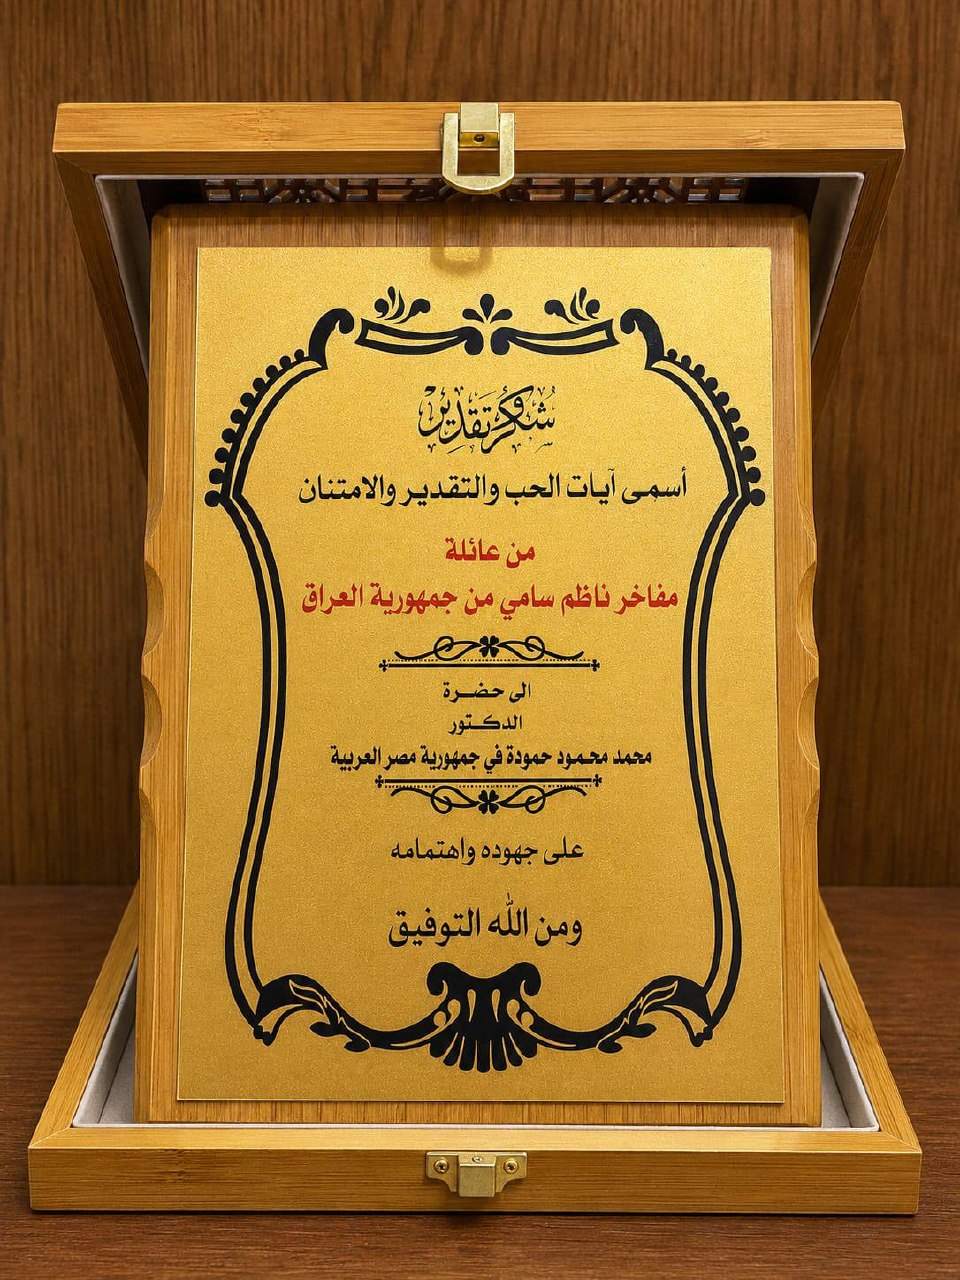 شكر وتقدير
أسمى آيات الحب والتقدير والامتنان
من عائلة
مفاخر ناظم سامي من جمهورية العراق
الى حضرة
الدكتور
محمد محمود حمودة في جمهورية مصر العربية
على جهوده واهتمامه
ومن الله التوفيق